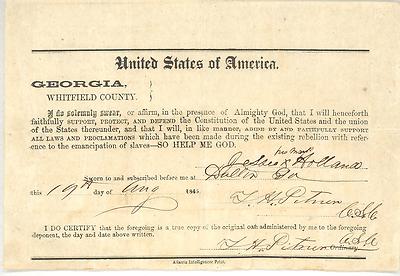 United States of America.
GEORGIA,
WHITFIELD COUNTY.
I do solemnly swear, or affirm, in the presence of Almighty God, that I will henceforth
faithfully SUPPORT, PROTECT, AND DEFEND the Constitution of the United States and the union
of the States thereunder, and that I will, in like manner, ABIDE BY AND FAITHFULLY SUPPORT
ALL LAWS AND PROCLAMATIONS which have been made during the existing rebellion with refer-
ence to the emancipation of slaves—SO HELP ME GOD.
his mark
x Holland
SWORN to and subscribed before me at Dalton Ga
this 19th day of Aug 1865
I DO CERTIFY that the foregoing is a true copy of the original oath administered by me to the foregoing
deponent, the day and date above written.
Ordinary
Atlanta Intelligencer Print.